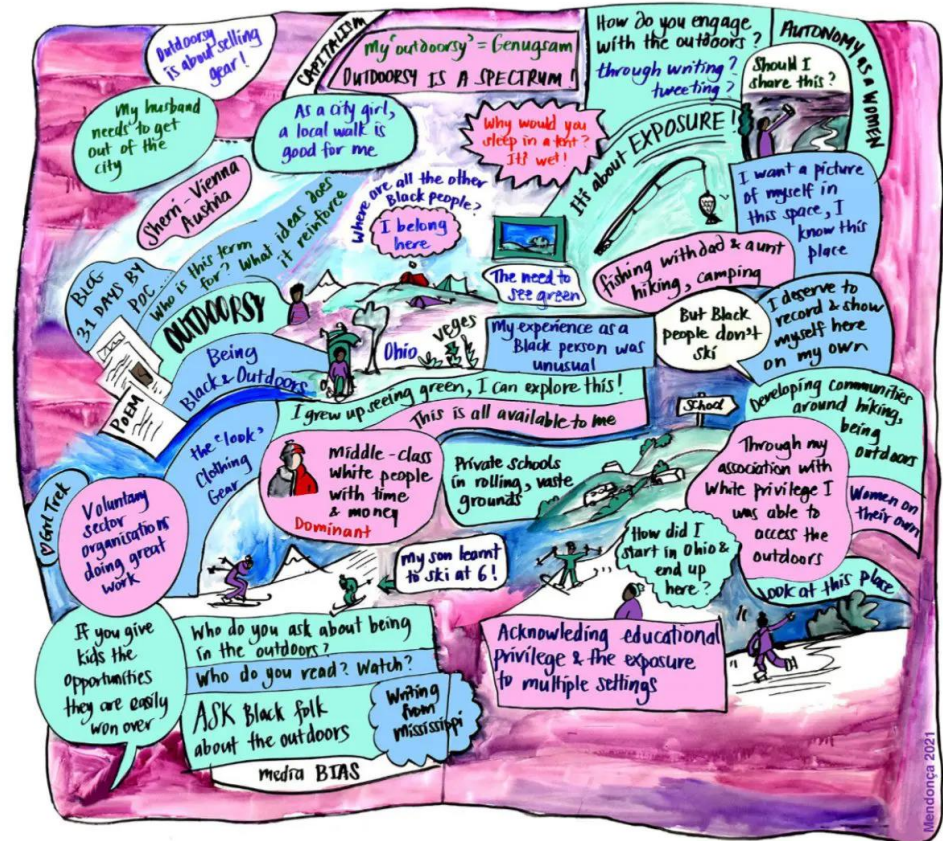 Outdoorsy
is about selling
gear!
CAPITALISM
My 'outdoorsy' = Genugsam
OUTDOORSY IS A SPECTRUM!
How do you engage
with the outdoors?
through writing?
tweeting?
AUTONOMY as a WOMEN
Should I
share this?
My husband
needs to get
out of the
city
As a city girl,
a local walk is
good for me
Why would you
sleep in a tent?
It's wet!
It's about EXPOSURE!
I want a picture
of myself in
this space, I
know this
place
Sherri - Vienna
Austria
Where are all the other
Black people?
I belong
here
The need to
see green
Fishing with dad & aunt
hiking, camping
BLOG
31 DAYS BY
POC...
Who is this term
for? What ideas does
it reinforce
OUTDOORSY
POEM
Being
Black & Outdoors
Ohio
veges
My experience as a
Black person was
unusual
But Black
people don't
ski
I deserve to
record & show
myself here
on my own
I grew up seeing green, I can explore this!
This is all available to me
School
Developing communities
around hiking,
being
outdoors
the 'look'
Clothing
Gear
Middle-class
White people
with time
& money
Dominant
Private schools
in rolling, vaste
grounds
Through my
association with
White privilege I
was able to
access the
outdoors
Women on
their own
Girl Trek
Voluntary
sector
organisations
doing great
work
my son learnt
to ski at 6!
How did I
start in Ohio &
end up
here?
Look at this place
If you give
kids the
opportunities
they are easily
won over
Who do you ask about being
in the outdoors?
Who do you read? Watch?
ASK Black folk
about the outdoors
Writing
from
Mississippi
media BIAS
Acknowleding educational
privilege & the exposure
to multiple settings
Mendonça 2021